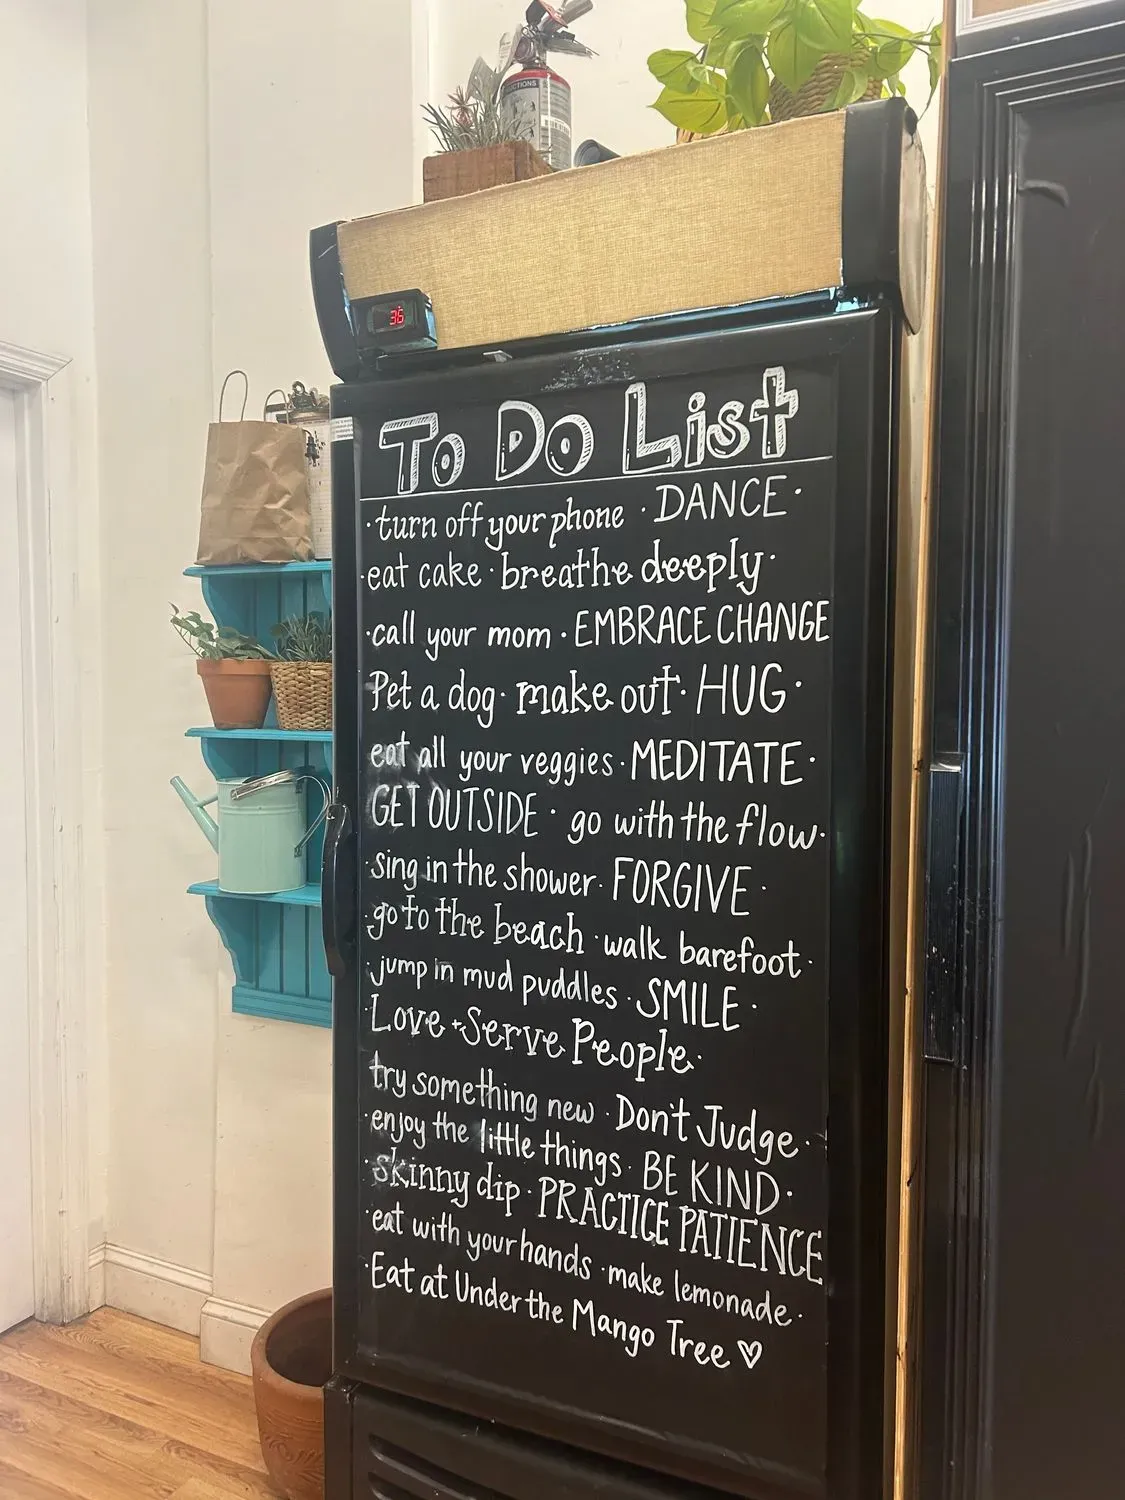 RUCTIONS
36
To Do List
·turn off your phone · DANCE·
·eat cake·breathe deeply·
·call your mom·EMBRACE CHANGE
Pet a dog·make out·HUG·
eat all your veggies·MEDITATE·
GET OUTSIDE· go with the flow·
·sing in the shower·FORGIVE·
·go to the beach·walk barefoot·
·jump in mud puddles·SMILE·
·Love+Serve People·
try something new·Don't Judge·
·enjoy the little things·BE KIND·
·skinny dip·PRACTICE PATIENCE
·eat with your hands·make lemonade·
·Eat at Under the Mango Tree♡